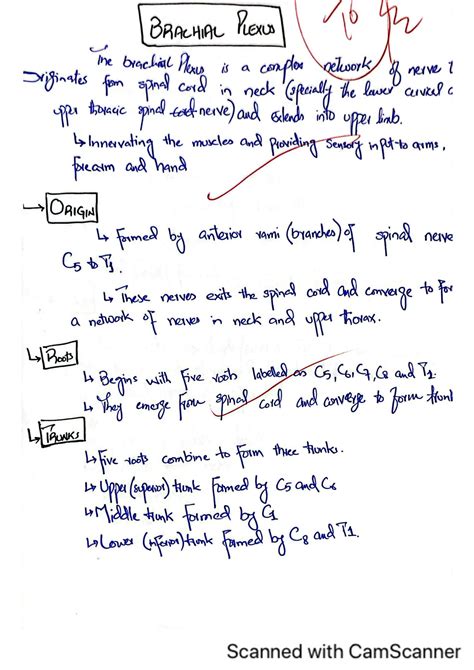 BRACHIAL PLEXUS
The brachial Plexus is a complex network of nerve
originates from spinal cord in neck (specially the lower cervical
upper thoracic spinal cord nerve) and extends into upper limb.
↳ Innervating the muscles and providing sensory input to arms,
forearm and hand
→ ORIGIN
↳ formed by anterior rami (branches) of spinal nerve
C5 to T1.
↳ These nerves exits the spinal cord and converge to for
a network of nerves in neck and upper thorax.
↳ Roots
↳ Begins with five roots labelled as C5, C6, C7, C8 and T1.
↳ They emerge from spinal cord and converge to form trunk
↳ TRUNKS
↳ Five roots combine to form three trunks.
↳ Upper (superior) trunk formed by C5 and C6
↳ Middle trunk formed by C7
↳ Lower (inferior) trunk formed by C8 and T1.
Scanned with CamScanner